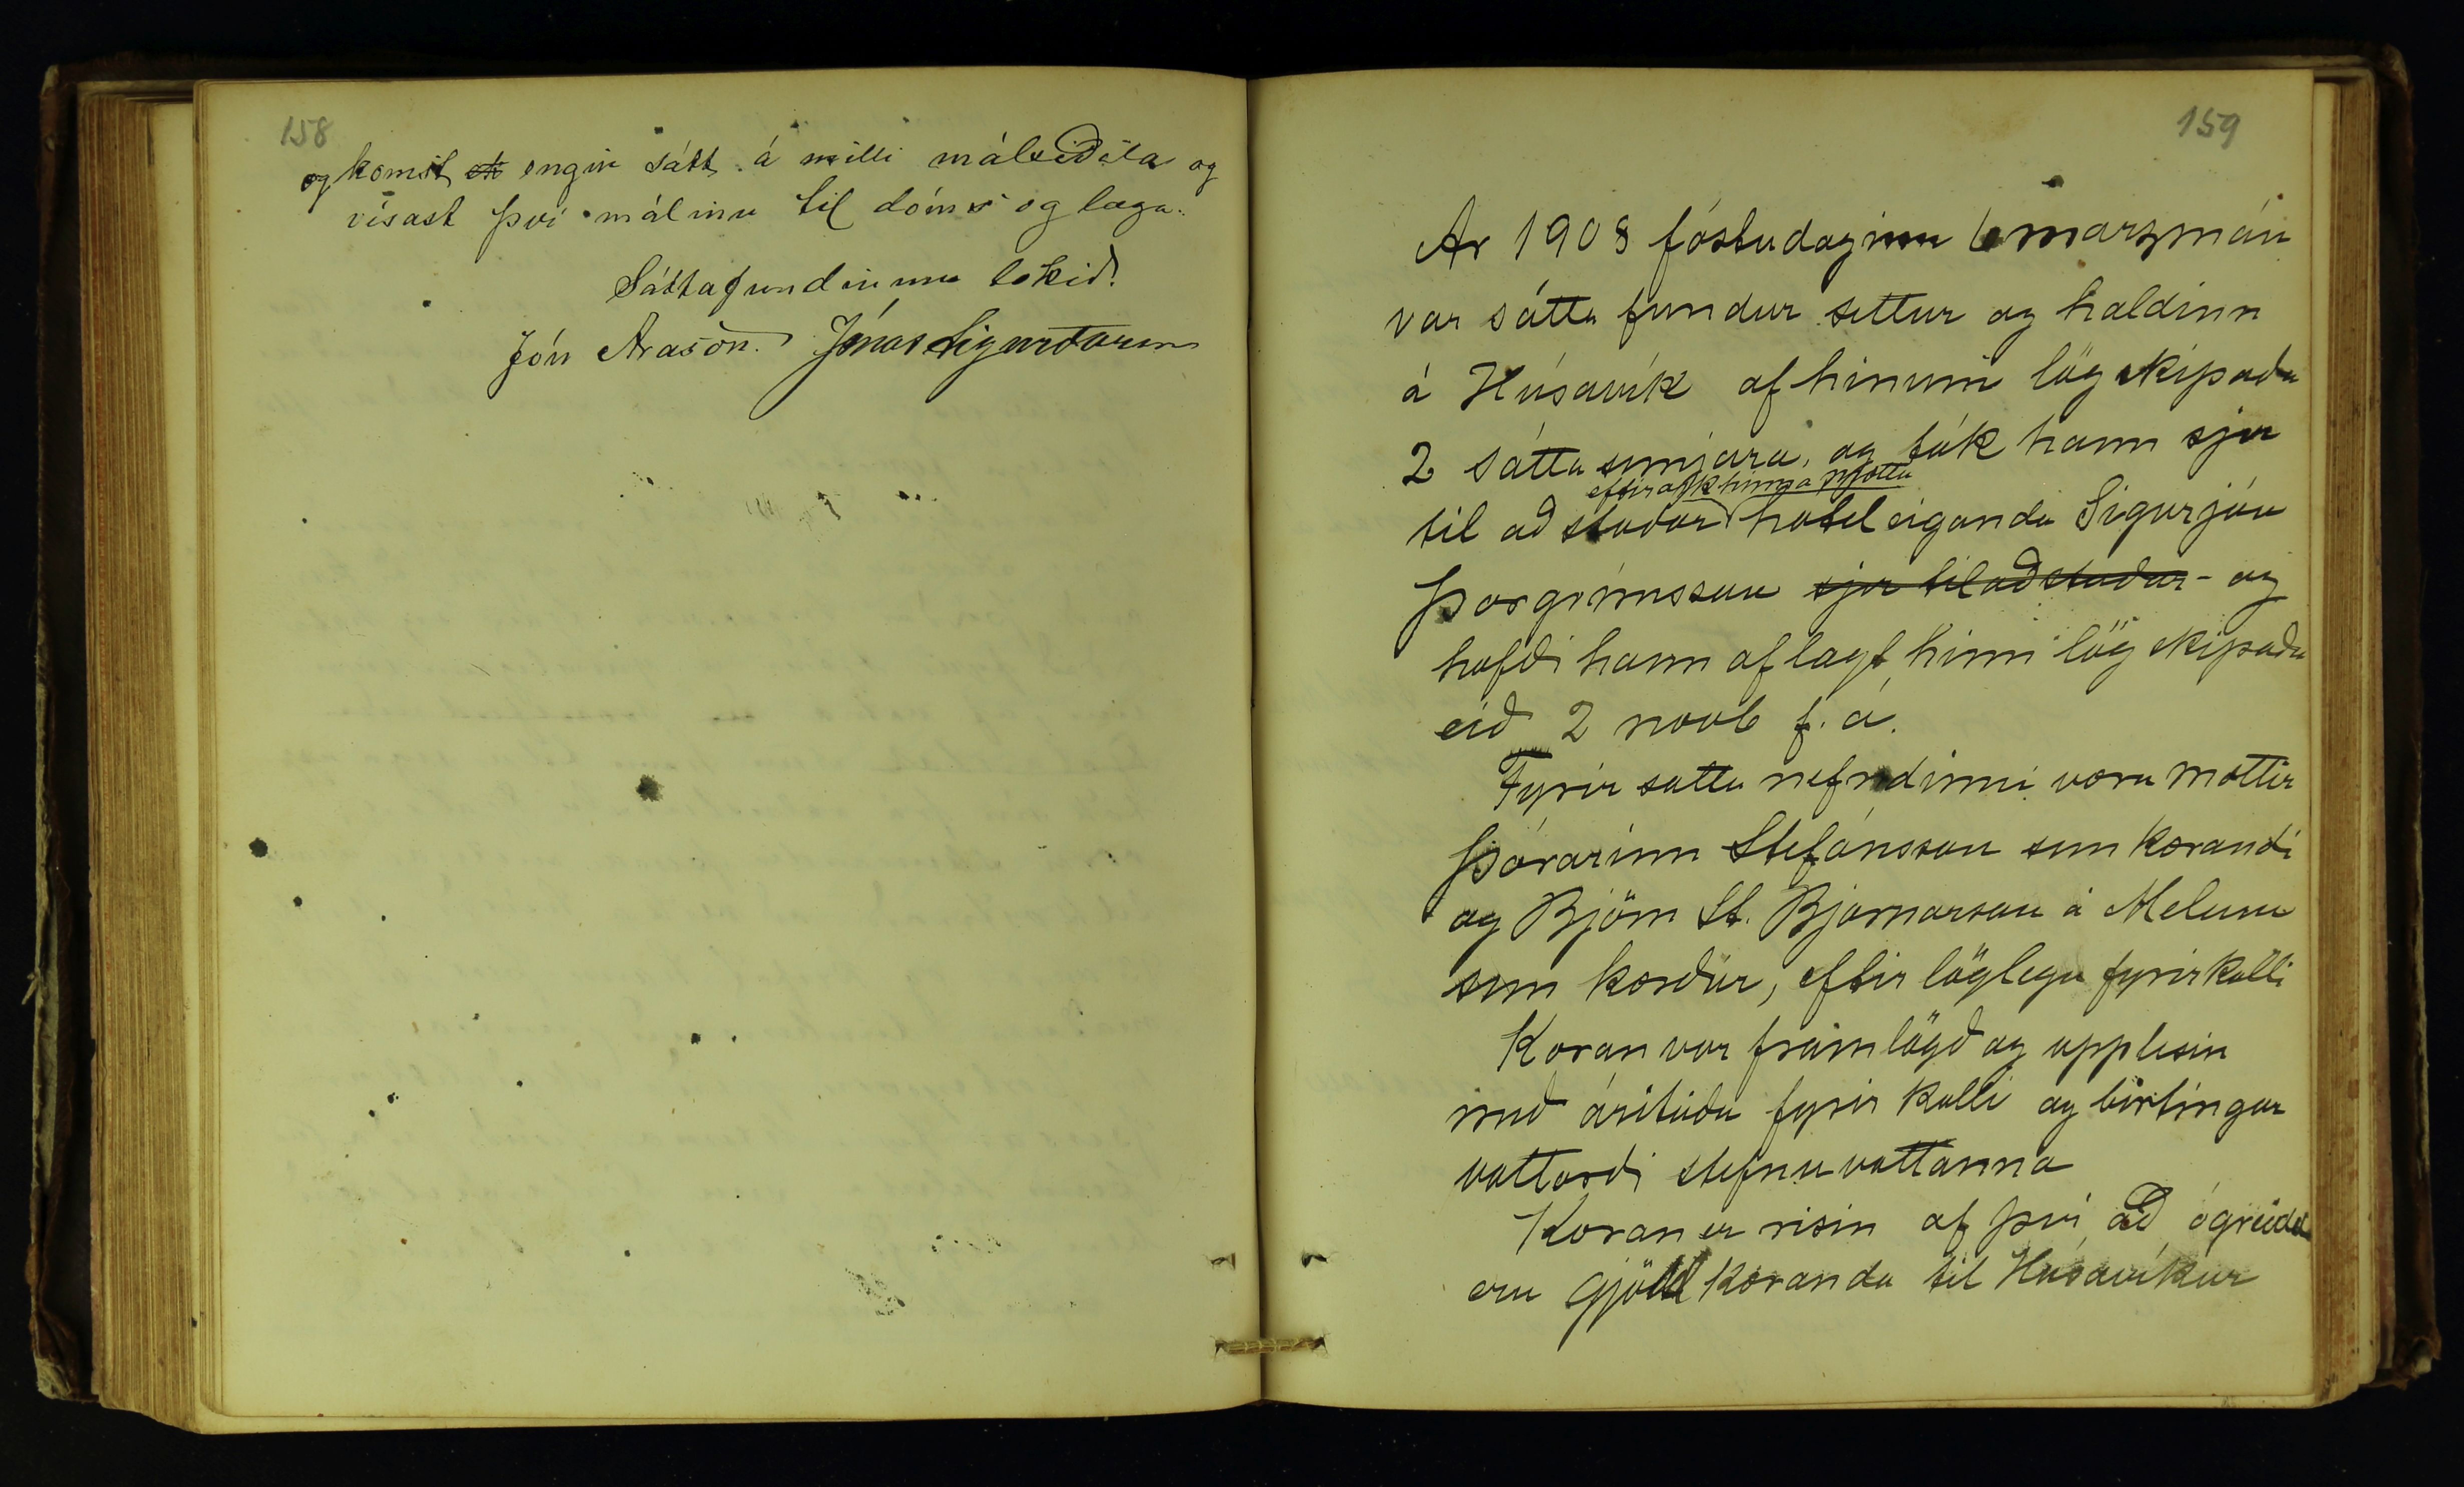 158
og komst engin sátt á milli málsaðila og
vísast því málinu til dóms og laga.
Sáttafundinum lokið.
Jón Arason. Jónas Sigurðsson
159
Ár 1908 föstudaginn 6 marzmán
var sátta fundur settur og haldinn
á Húsavík af hinum lögskipaða
2 sátta semjara, og tók hann sjer
eftir
til aðstoðar hotel eiganda Sigurjón
Þorgrímsson sjer til aðstoðar - og
hafði hann aflagt hinn lögskipaða
eið 2 novb f. á.
Fyrir sátta nefndinni voru mættir
Þórarinn Stefánsson sem kærandi
og Björn St. Bjarnarson á Melum
sem kærður, eftir löglegu fyrirkalli
Kæran var framlögð og upplesin
með árituðu fyrir kalli og birtingar
vottorði stefnuvottanna
Kæran er risin af því, að ógreidd
eru gjöld kæranda til Húsavíkur